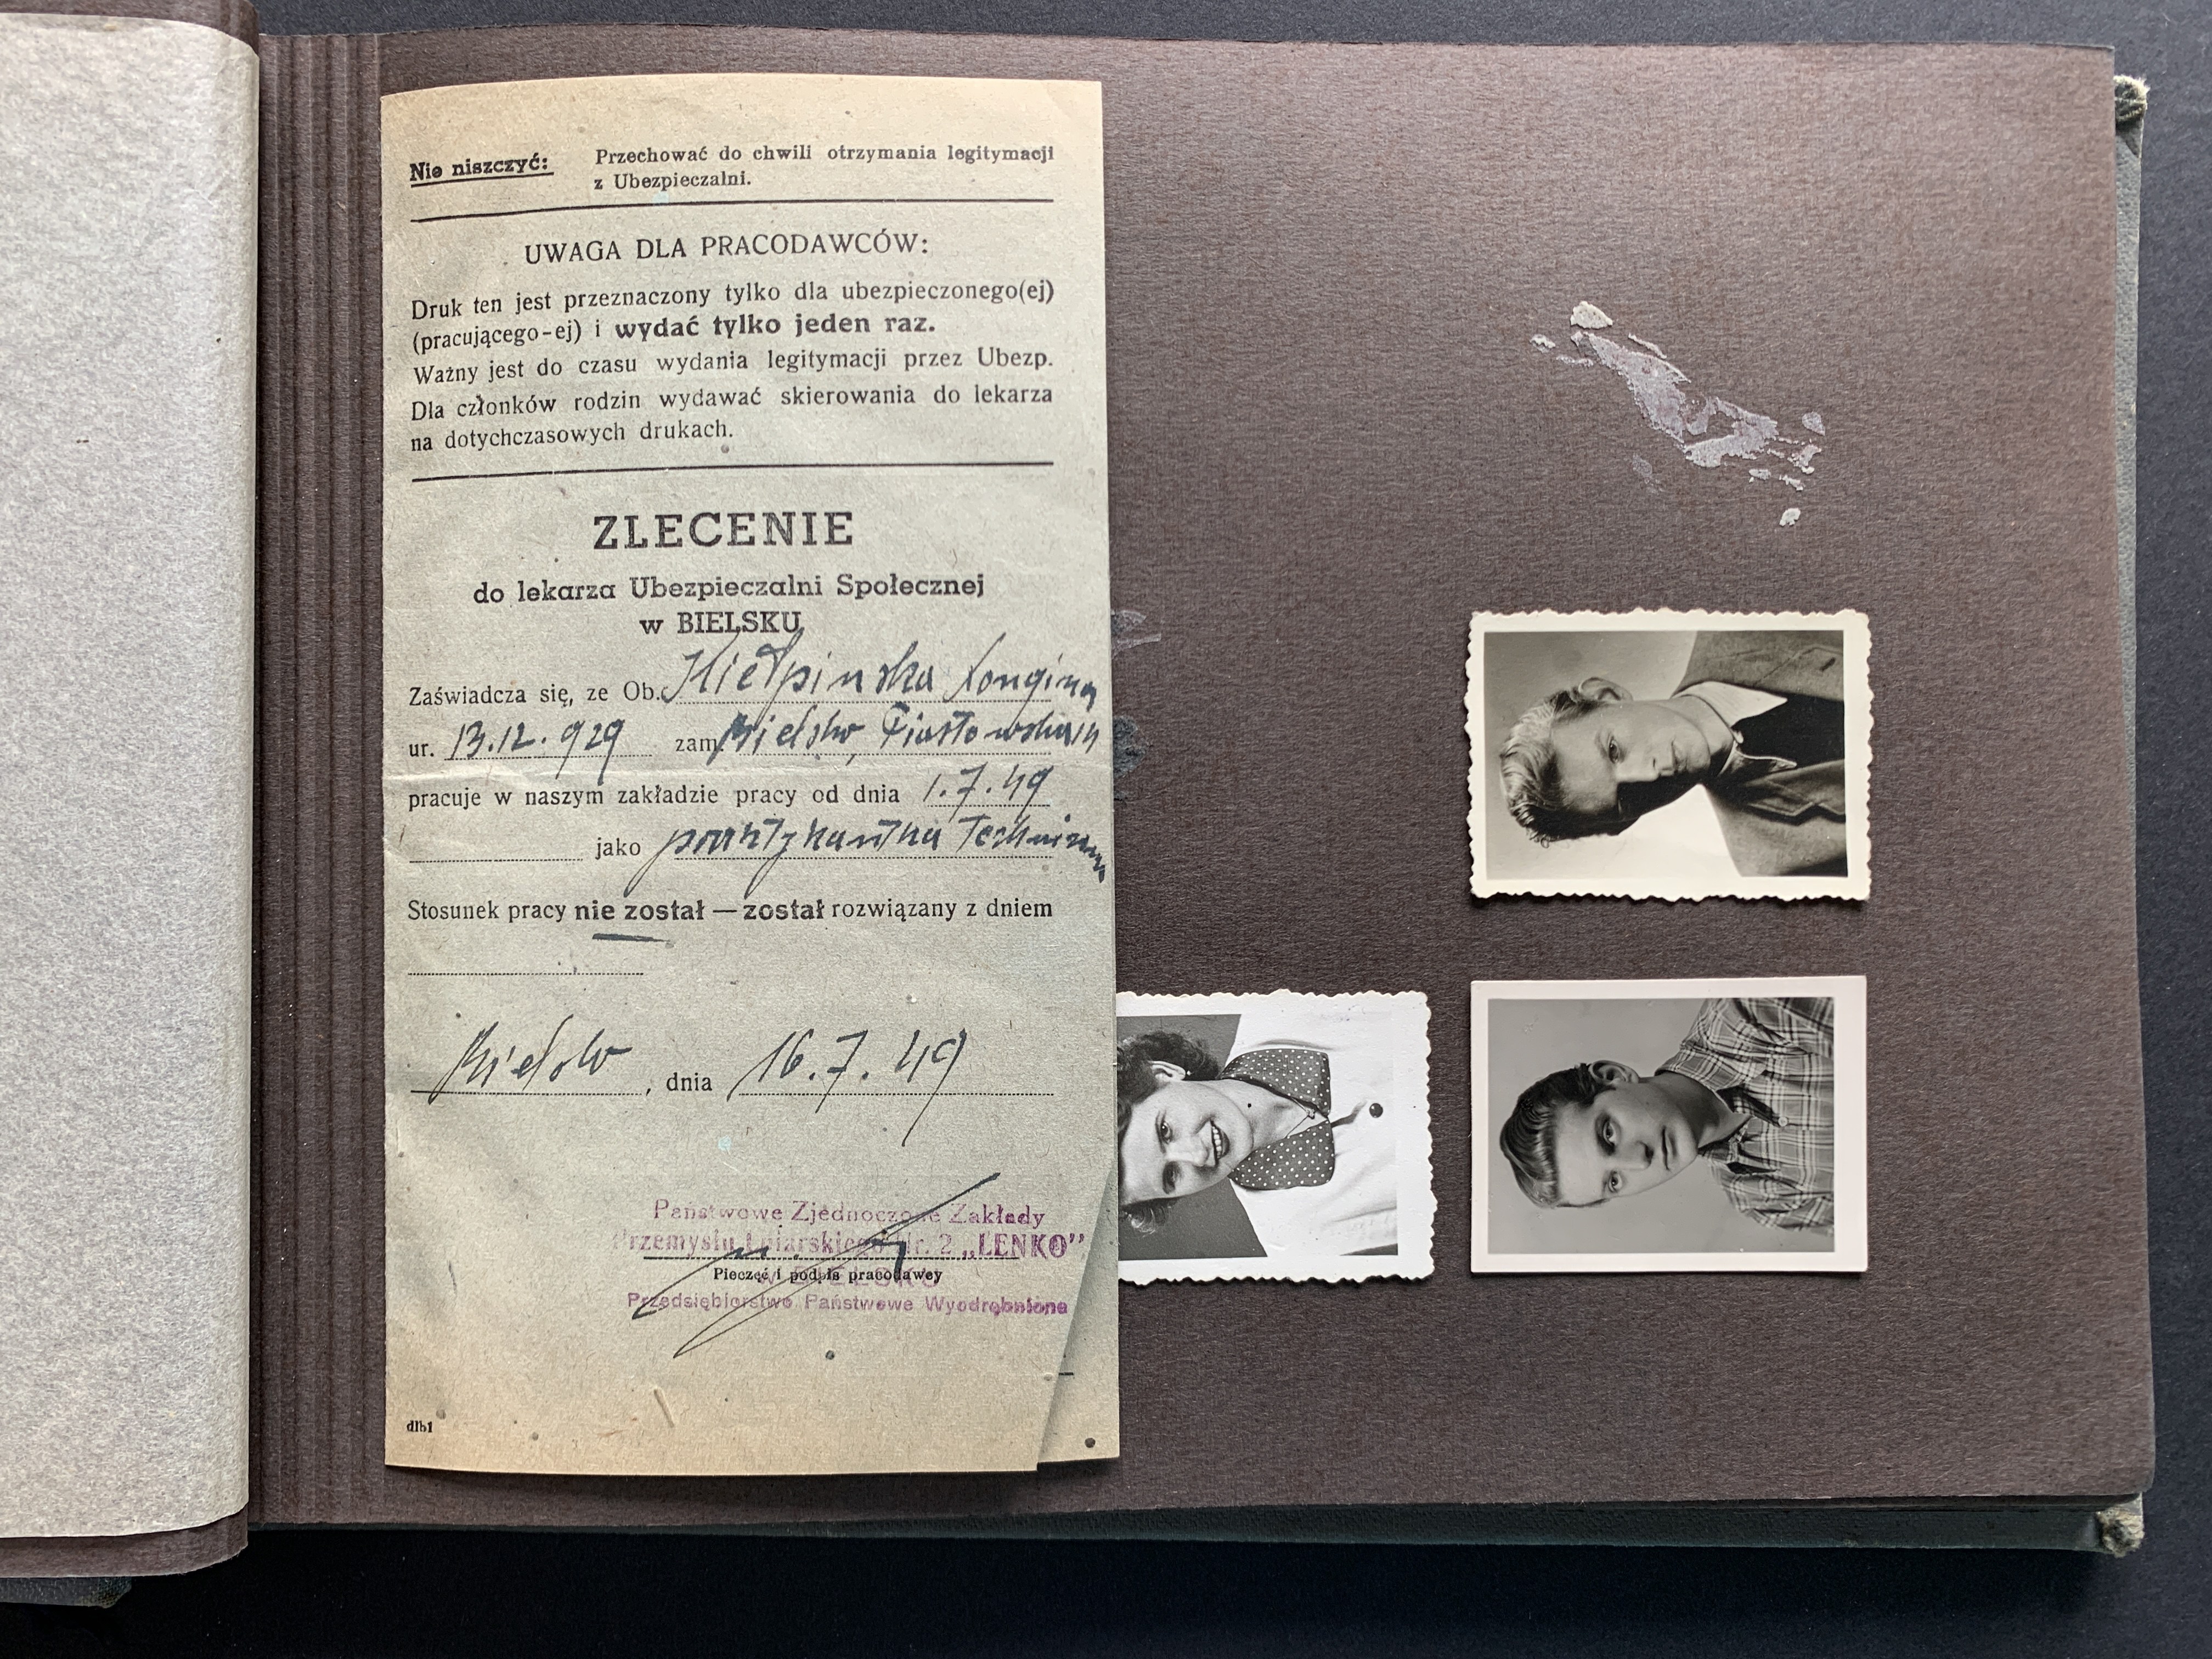 Nie niszczyć: Przechować do chwili otrzymania legitymacji
z Ubezpieczalni.
UWAGA DLA PRACODAWCÓW:
Druk ten jest przeznaczony tylko dla ubezpieczonego(ej)
(pracującego-ej) i wydać tylko jeden raz.
Ważny jest do czasu wydania legitymacji przez Ubezp.
Dla członków rodzin wydawać skierowania do lekarza
na dotychczasowych drukach.
ZLECENIE
do lekarza Ubezpieczalni Społecznej
w BIELSKU
Zaświadcza się, ze Ob. Kiełpinska Longina
ur. 13.12.929 zam. Bielsko, Piastowska
pracuje w naszym zakładzie pracy od dnia 1.7.49
jako praktykantka
Stosunek pracy nie został — został rozwiązany z dniem
Bielsko, dnia 16.7.49
Państwowe Zjednoczone Zakłady
Przemysłu Lniarskiego Nr. 2 „LENKO”
Pieczęć i podpis pracodawcy
Przedsiębiorstwo Państwowe Wyodrębnione
dlb1